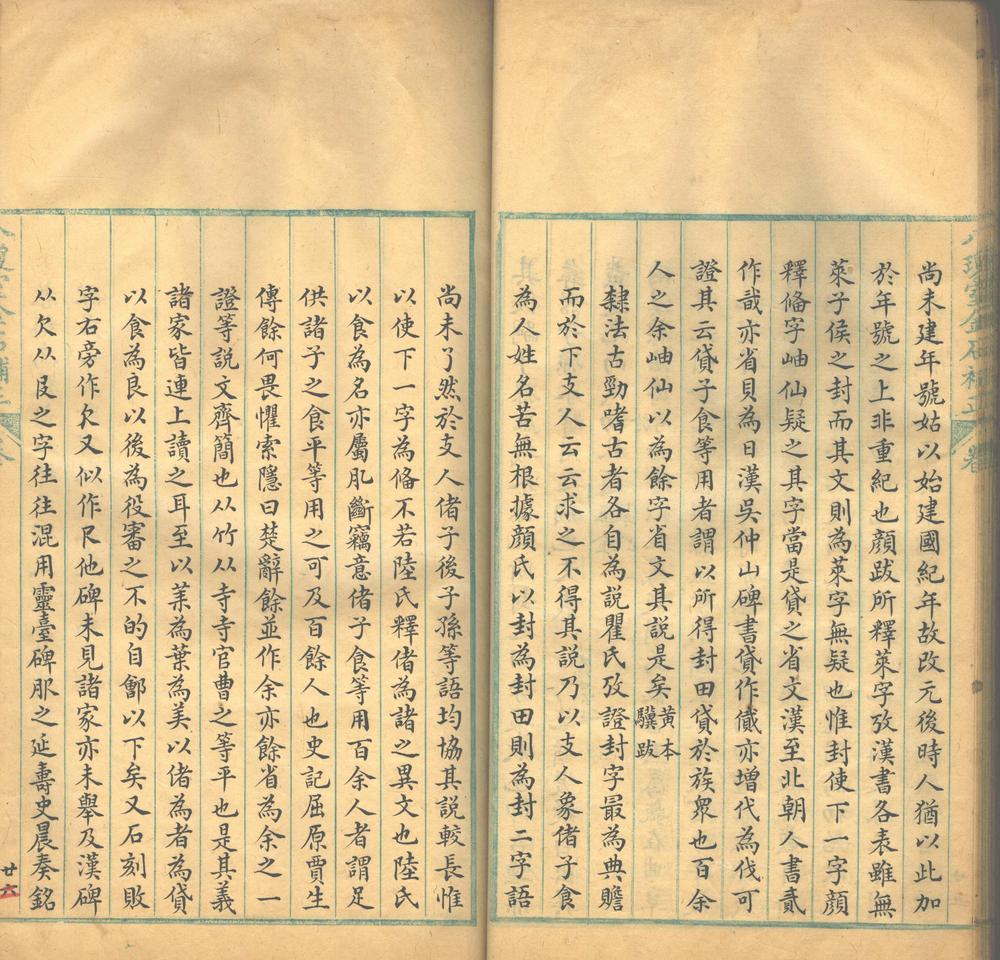 尚未建年號姑以始建國紀年故改元後時人猶以此加
於年號之上非重紀也顏跋所釋萊字攷漢書各表雖無
萊子侯之封而其文則為萊字無疑也惟封使下一字顏
釋偹字岫仙疑之其字當是貸之省文漢至北朝人書貳
作貮亦省貝為日漢吳仲山碑書貸作儎亦增代為伐可
證其云貸子食等用者謂以所得封田貸於族眾也百余
人之余岫仙以為餘字省文其說是矣黃本驥跋
隸法古勁嗜古者各自為說瞿氏攷證封字最為典贍
而於下支人云云求之不得其說乃以支人象偖子食
為人姓名苦無根據顏氏以封為封田則為封二字語
尚未了然於支人偖子後子孫等語均協其說較長惟
以使下一字為偹不若陸氏釋偖為諸之異文也陸氏
以食為名亦屬肊斷竊意偖子食等用百余人者謂足
供諸子之食平等用之可及百餘人也史記屈原賈生
傳餘何畏懼索隱曰楚辭餘並作余亦餘省為余之一
證等說文齊簡也从竹从寺寺官曹之等平也是其義
諸家皆連上讀之耳至以萊為葉為美以偖為者為貸
以食為良以後為役審之不的自鄶以下矣又石刻敗
字右旁作欠又似作尺他碑未見諸家亦未舉及漢碑
从欠从𠬝之字往往混用靈臺碑服之延壽史晨奏銘
八瓊室金石補正
卷
廿六